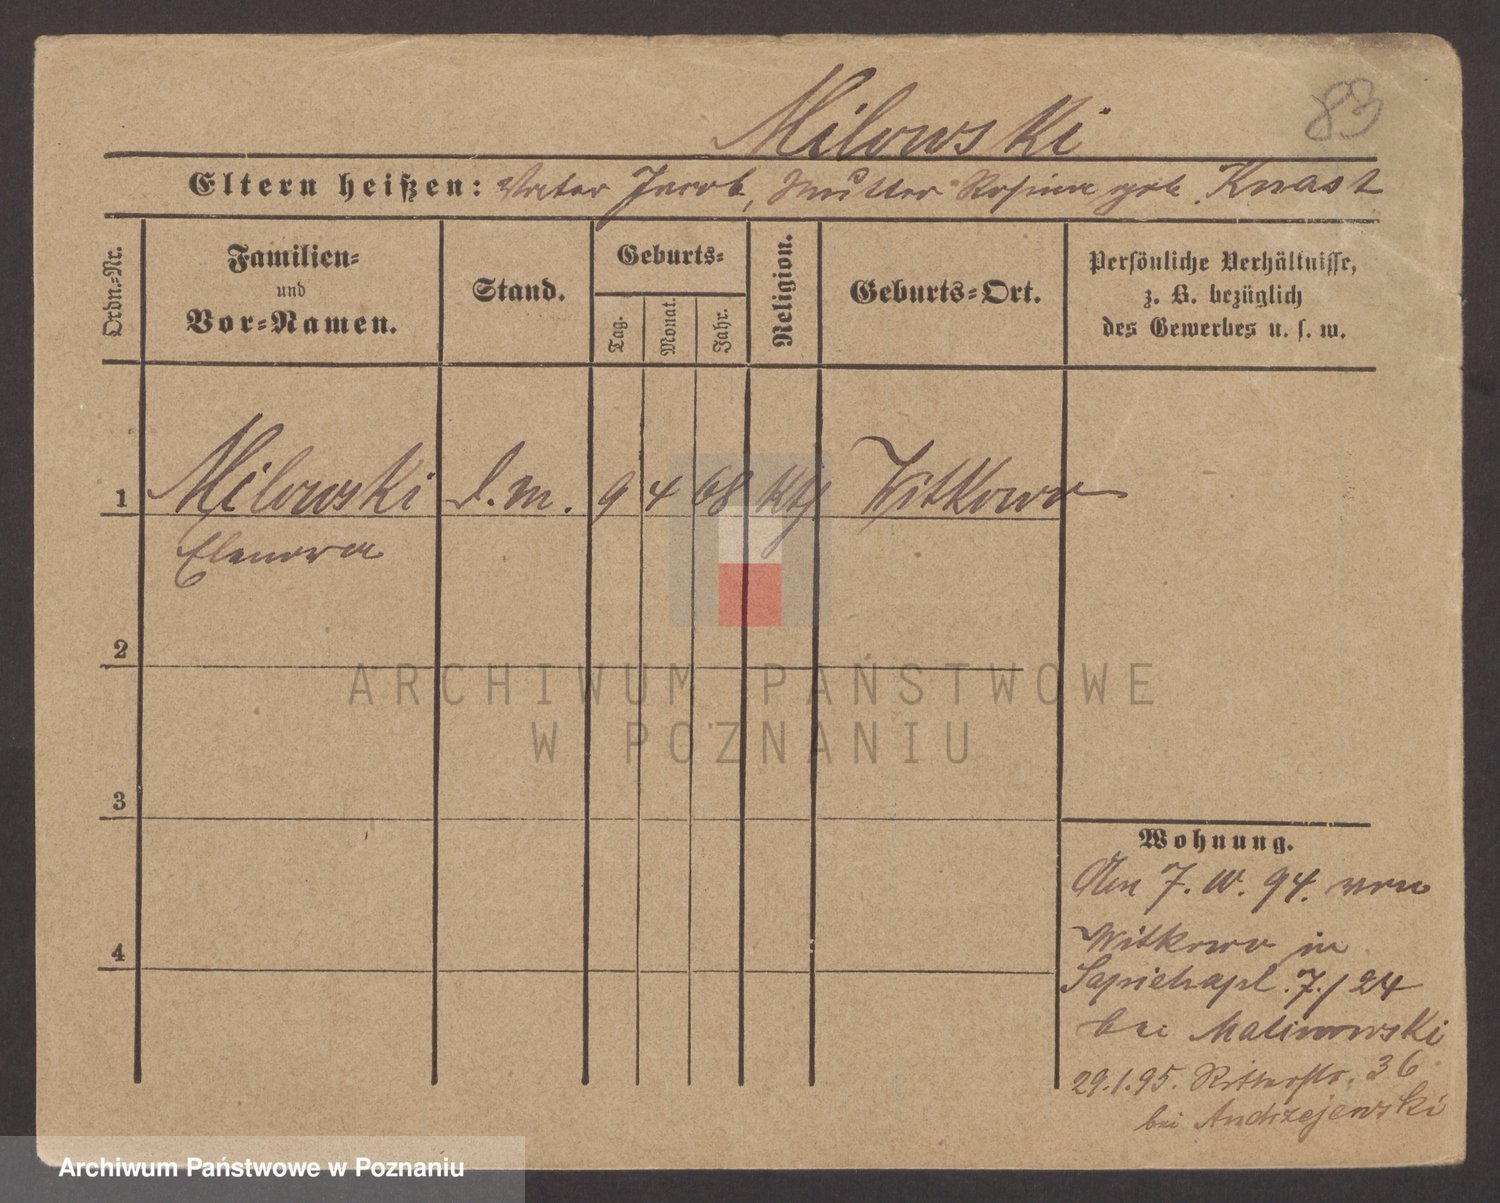 83
Milowski
Eltern heißen: Vater Jacob, Mutter Rosina geb. Knast
Ordn.=Nr.
Familien=
und
Vor=Namen.
Stand.
Geburts=
Tag.
Monat.
Jahr.
Religion.
Geburts=Ort.
Persönliche Verhältnisse,
z. B. bezüglich
des Gewerbes u. s. w.
1 Milowski d. m. 9 4 68 kth Witkowo
Elenora
2
ARCHIWUM PAŃSTWOWE
W POZNANIU
3
Wohnung.
Am 7. IV. 94. von
4
Witkowo in
Sapiehapl. 7./24
bei Malinowski
29.1.95. Ritterstr. 36
bei Andrzejewski
Archiwum Państwowe w Poznaniu